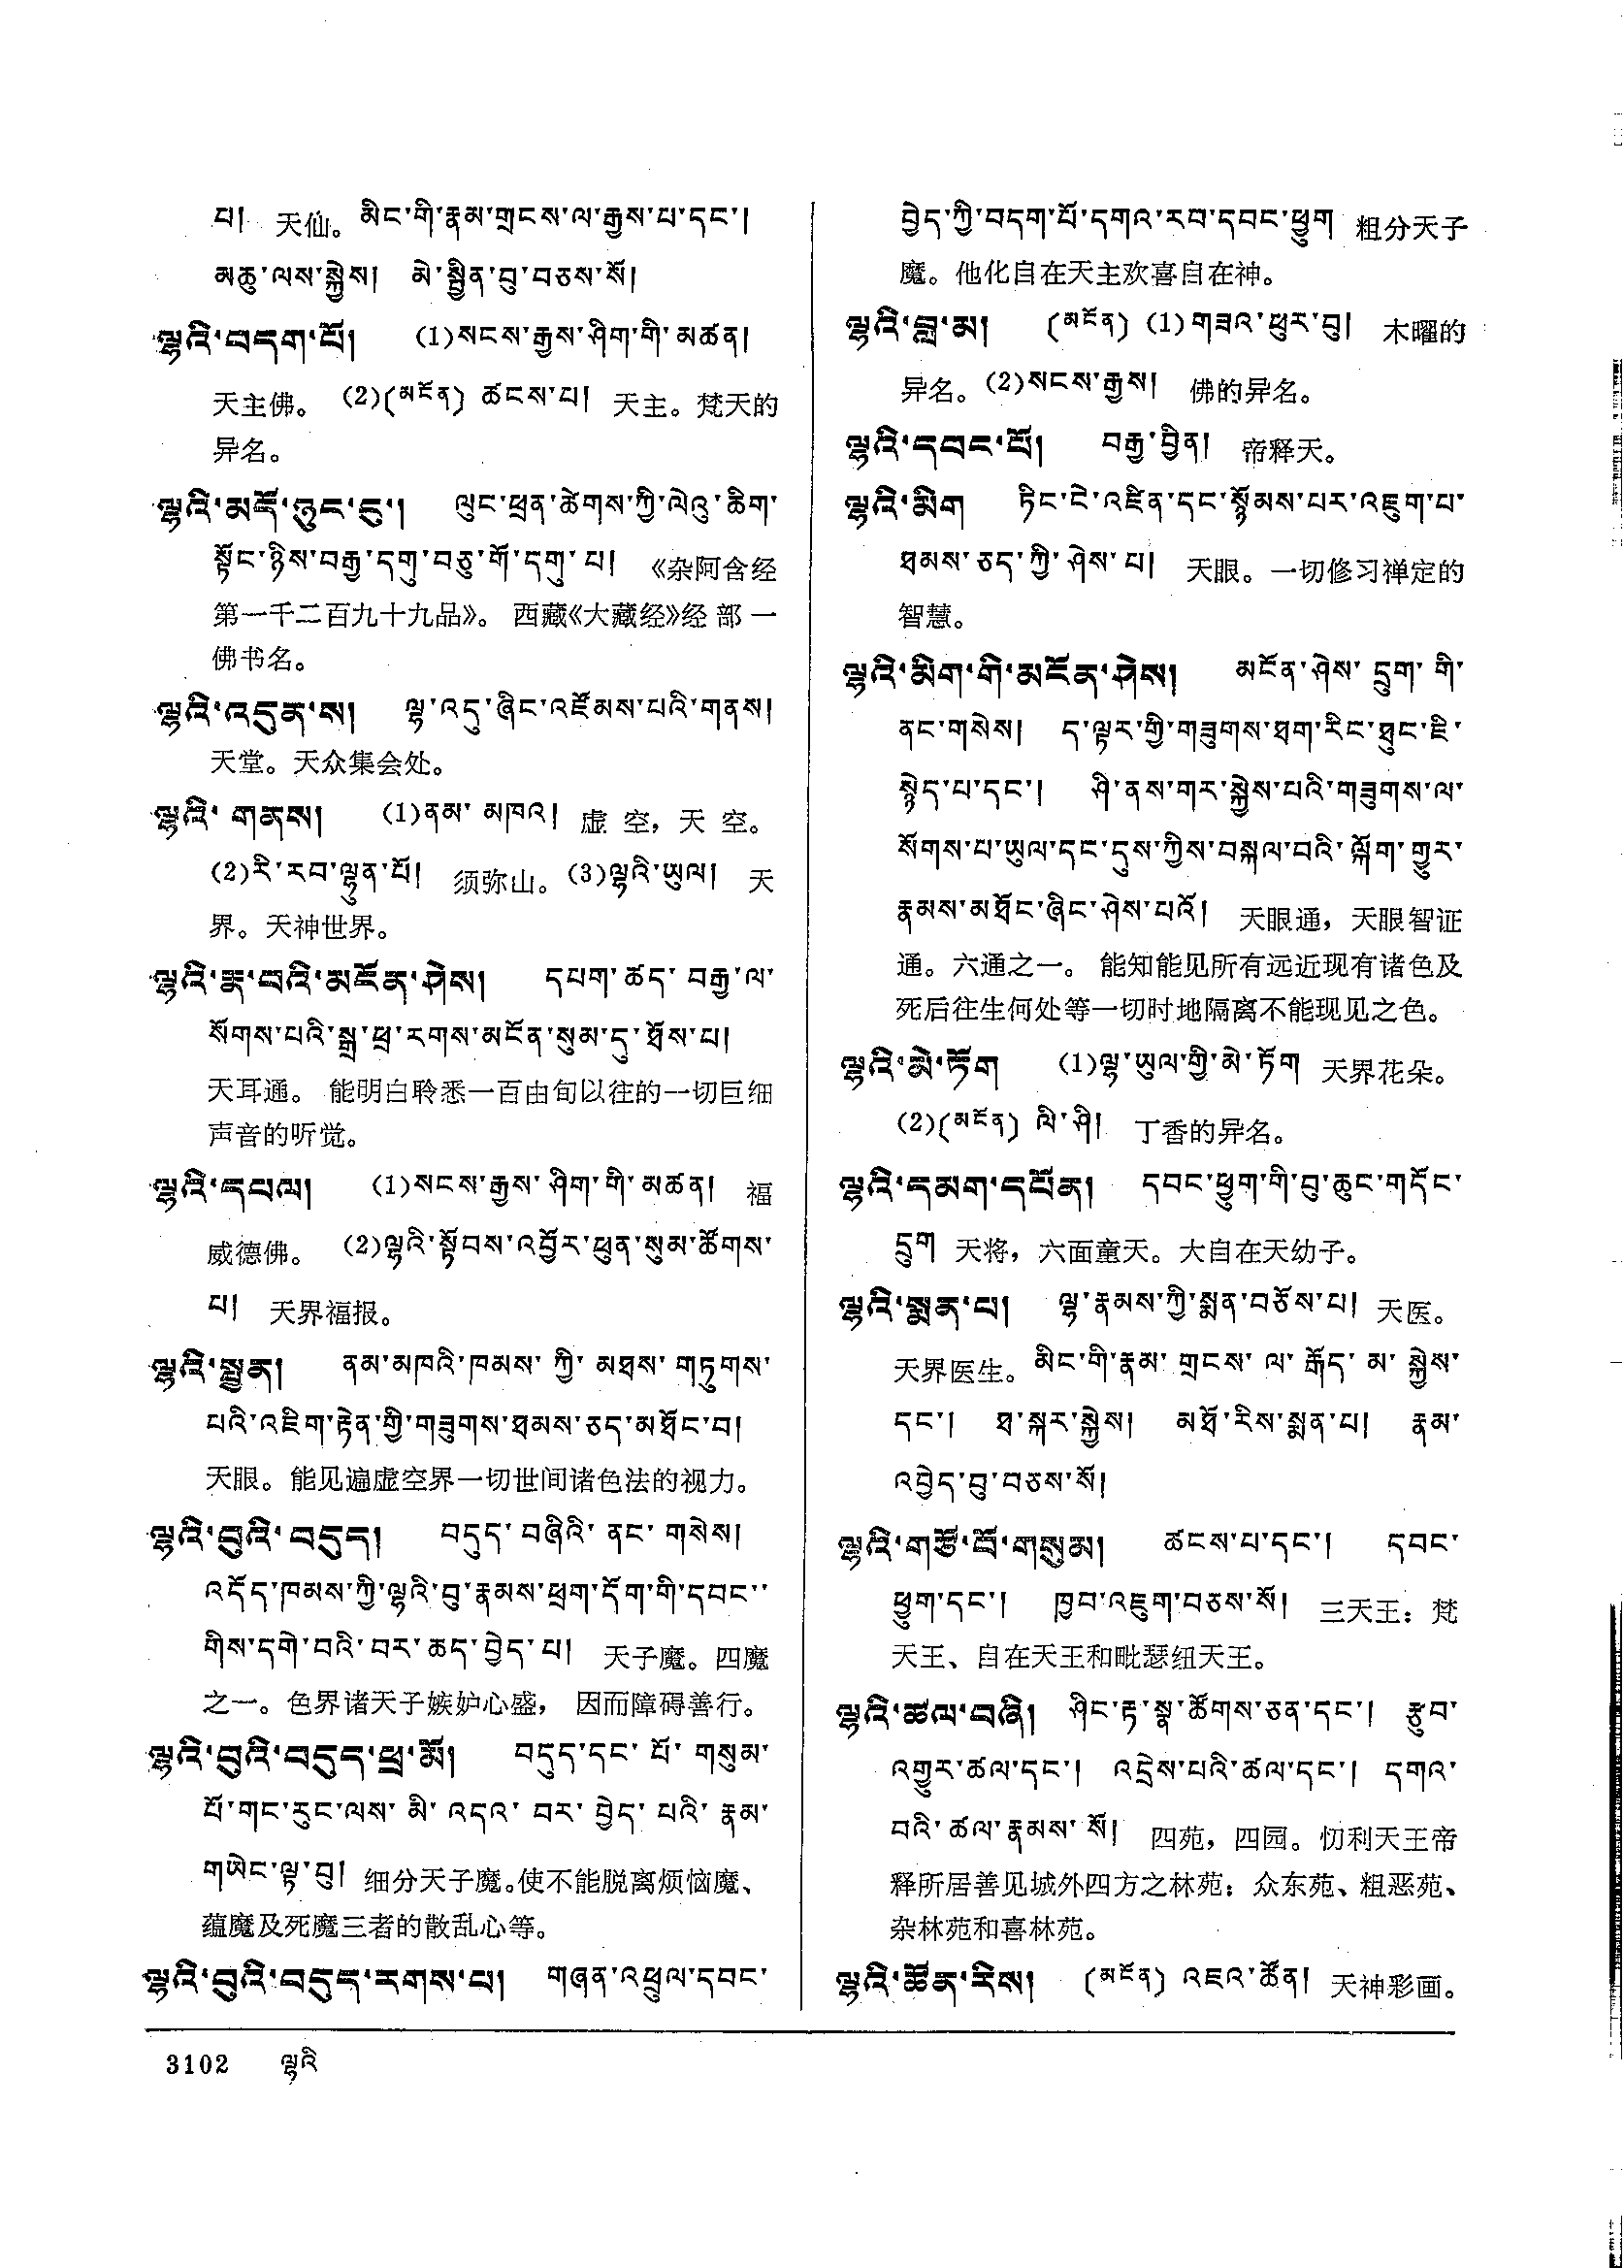 པ། 天仙。མིང་གི་རྣམ་གྲངས་ལ་རྒྱས་པ་དང་།
མཆུ་ལས་སྐྱེས། མེ་སྦྱིན་བུ་བཅས་སོ།
ལྷའི་བདག་པོ། (1)སངས་རྒྱས་ཤིག་གི་མཚན།
天主佛。 (2)(མངོན) ཚངས་པ། 天主。梵天的
异名。
ལྷའི་མདོ་ཉུང་ངུ་། ལུང་ཕྲན་ཚེགས་ཀྱི་ལེའུ་ཆིག་
སྟོང་ཉིས་བརྒྱ་དགུ་བཅུ་གོ་དགུ་པ། 《杂阿含经
第一千二百九十九品》。 西藏《大藏经》经部一
佛书名。
ལྷའི་འདུན་ས། ལྷ་འདུ་ཞིང་འཛོམས་པའི་གནས།
天堂。天众集会处。
ལྷའི་གནས། (1)ནམ་མཁའ། 虚空，天空。
(2)རི་རབ་ལྷུན་པོ། 须弥山。(3)ལྷའི་ཡུལ། 天
界。天神世界。
ལྷའི་རྣ་བའི་མངོན་ཤེས། དཔག་ཚད་བརྒྱ་ལ་
སོགས་པའི་སྒྲ་ཕྲ་རགས་མངོན་སུམ་དུ་ཐོས་པ།
天耳通。 能明白聆悉一百由旬以往的一切巨细
声音的听觉。
ལྷའི་དཔལ། (1)སངས་རྒྱས་ཤིག་གི་མཚན། 福
威德佛。 (2)ལྷའི་སྟོབས་འབྱོར་ཕུན་སུམ་ཚོགས་
པ། 天界福报。
ལྷའི་སྤྱན། ནམ་མཁའི་ཁམས་ཀྱི་མཐས་གཏུགས་
པའི་འཇིག་རྟེན་གྱི་གཟུགས་ཐམས་ཅད་མཐོང་བ།
天眼。能见遍虚空界一切世间诸色法的视力。
ལྷའི་བུའི་བདུད། བདུད་བཞིའི་ནང་གསེས།
འདོད་ཁམས་ཀྱི་ལྷའི་བུ་རྣམས་ཕྲག་དོག་གི་དབང་་
གིས་དགེ་བའི་བར་ཆད་བྱེད་པ། 天子魔。四魔
之一。色界诸天子嫉妒心盛， 因而障碍善行。
ལྷའི་བུའི་བདུད་ཕྲ་མོ། བདུད་དང་པོ་གསུམ་
པོ་གང་རུང་ལས་མི་འདའ་བར་བྱེད་པའི་རྣམ་
གཡེང་ལྟ་བུ། 细分天子魔。使不能脱离烦恼魔、
蕴魔及死魔三者的散乱心等。
ལྷའི་བུའི་བདུད་རགས་པ། གཞན་འཕྲུལ་དབང་
བྱེད་ཀྱི་བདག་པོ་དགའ་རབ་དབང་ཕྱུག 粗分天子
魔。他化自在天主欢喜自在神。
ལྷའི་བླ་མ། (མངོན) (1)གཟའ་ཕུར་བུ། 木曜的
异名。(2)སངས་རྒྱས། 佛的异名。
ལྷའི་དབང་པོ། བརྒྱ་བྱིན། 帝释天。
ལྷའི་མིག ཏིང་ངེ་འཛིན་དང་སྙོམས་པར་འཇུག་པ་
ཐམས་ཅད་ཀྱི་ཤེས་པ། 天眼。一切修习禅定的
智慧。
ལྷའི་མིག་གི་མངོན་ཤེས། མངོན་ཤེས་དྲུག་གི་
ནང་གསེས། ད་ལྟར་གྱི་གཟུགས་ཐག་རིང་ཐུང་ཇི་
སྙེད་པ་དང་། ཤི་ནས་གར་སྐྱེས་པའི་གཟུགས་ལ་
སོགས་པ་ཡུལ་དང་དུས་ཀྱིས་བསྐལ་བའི་ལྐོག་གྱུར་
རྣམས་མཐོང་ཞིང་ཤེས་པའོ། 天眼通，天眼智证
通。六通之一。 能知能见所有远近现有诸色及
死后往生何处等一切时地隔离不能现见之色。
ལྷའི་མེ་ཏོག (1)ལྷ་ཡུལ་གྱི་མེ་ཏོག 天界花朵。
(2)(མངོན) ལི་ཤི། 丁香的异名。
ལྷའི་དམག་དཔོན། དབང་ཕྱུག་གི་བུ་ཆུང་གདོང་
དྲུག 天将，六面童天。大自在天幼子。
ལྷའི་སྨན་པ། ལྷ་རྣམས་ཀྱི་སྨན་བཅོས་པ། 天医。
天界医生。མིང་གི་རྣམ་གྲངས་ལ་རྒོད་མ་སྐྱེས་
དང་། ཐ་སྐར་སྐྱེས། མཐོ་རིས་སྨན་པ། རྣམ་
འབྱེད་བུ་བཅས་སོ།
ལྷའི་གཙོ་བོ་གསུམ། ཚངས་པ་དང་། དབང་
ཕྱུག་དང་། ཁྱབ་འཇུག་བཅས་སོ། 三天王：梵
天王、自在天王和毗瑟纽天王。
ལྷའི་ཚལ་བཞི། ཤིང་རྟ་སྣ་ཚོགས་ཅན་དང་། རྩུབ་
འགྱུར་ཚལ་དང་། འདྲེས་པའི་ཚལ་དང་། དགའ་
བའི་ཚལ་རྣམས་སོ། 四苑，四园。忉利天王帝
释所居善见城外四方之林苑：众东苑、粗恶苑、
杂林苑和喜林苑。
ལྷའི་ཚོན་རིས། (མངོན) འཇའ་ཚོན། 天神彩画。
3102 ལྷའི